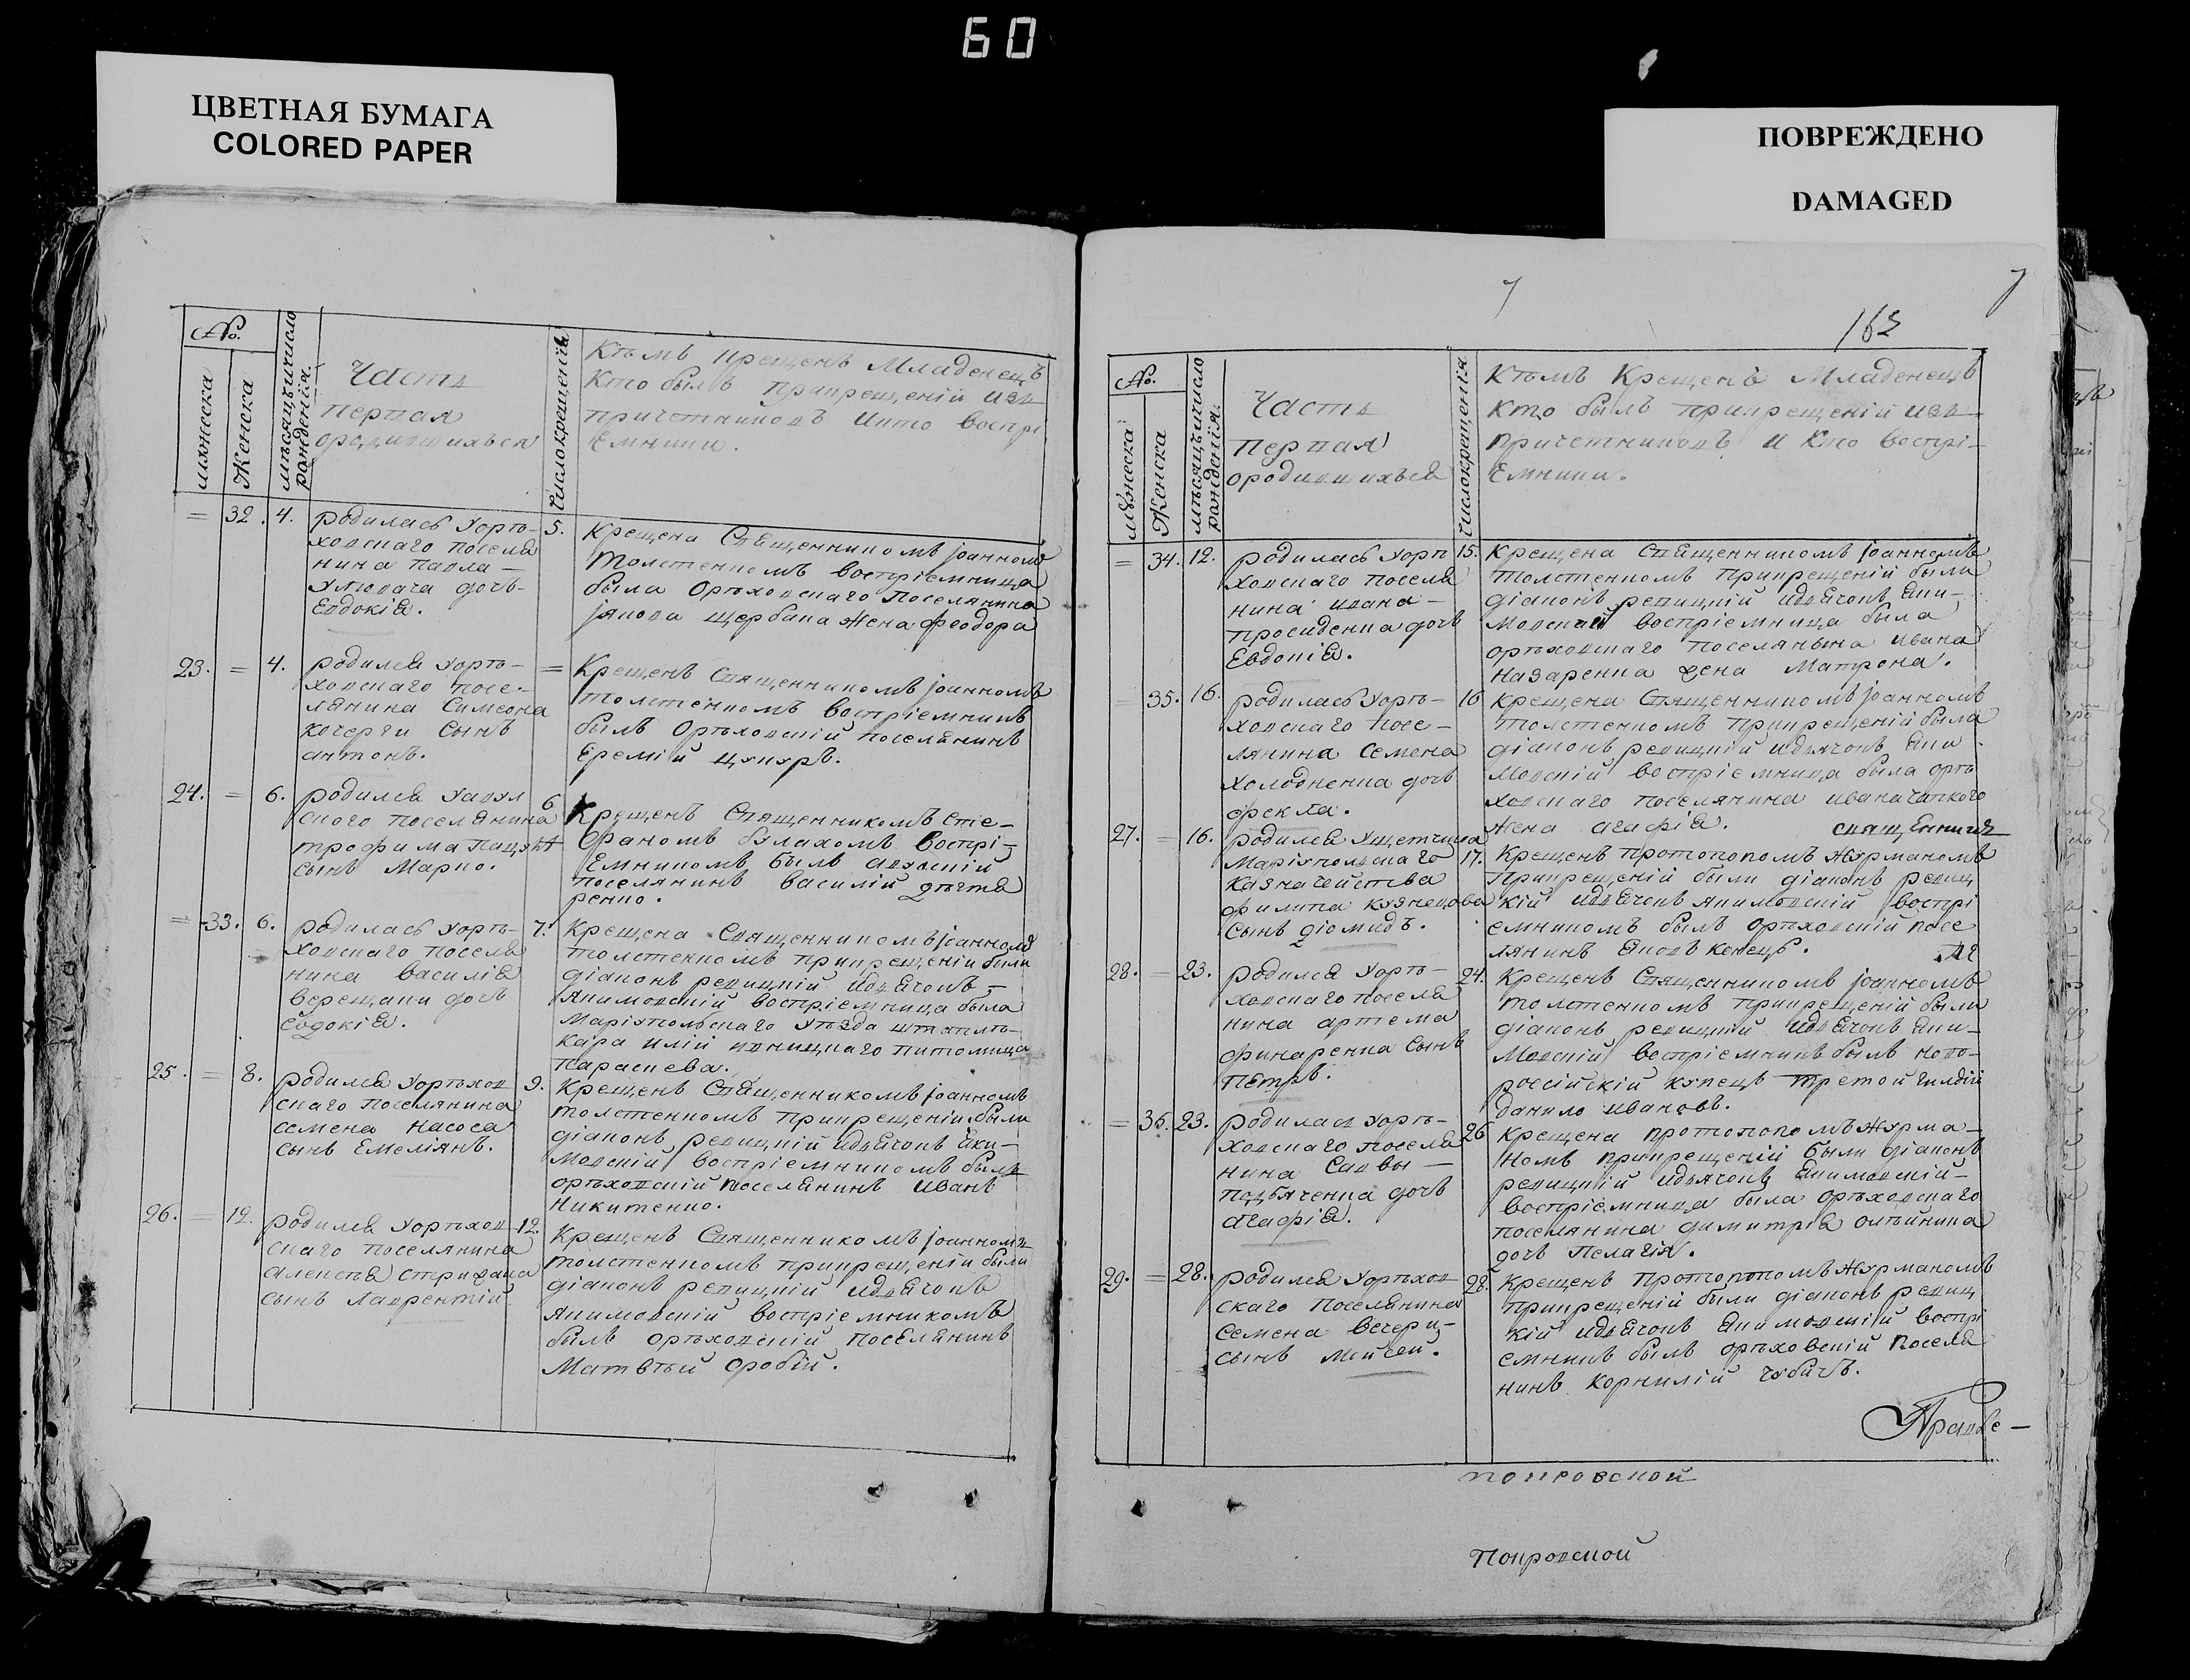 60
ЦВЕТНАЯ БУМАГА
COLORED PAPER
ПОВРЕЖДЕНО
DAMAGED
№.
мужеска
Женска
мѣсяцъ ичисло
рожденїя.
Часть
первая
ородившихъся
Число крещенїя
Кѣмъ крещенъ Младенецъ
Кто былъ прикрещенїй изъ
причетниковъ икто воспрі
Емники.
=
32.
4.
родилась Уорѣ-
ховскаго поселя
нина павла -
дочь-
Евдокія.
5.
Крещена Священникомъ іоанномъ
толстенкомъ воспріемница
была Орѣховскаго поселянина
іакова щербака жена феодора
23.
=
4.
родился Уорѣ-
ховскаго посе-
лянина Симеона
кочерги сынъ
антонъ.
=
Крещенъ Священникомъ іоанномъ
толстенкомъ воспріемникъ
былъ Орѣховскій поселянинъ
Еремій цукуръ.
24.
=
6.
родился
ского поселянина
трофима
сынъ Марко.
6
Крещенъ Священникомъ сте-
фаномъ булахомъ воспрі-
Емникомъ былъ
поселянинъ василій дегтя
ренко.
=
33.
6.
родилась Уорѣ-
ховскаго поселя
нина василія
верещаки дочь
Евдокія.
7.
Крещена Священникомъ іоанномъ
толстенкомъ прикрещенїи были
діаконъ ревицкїй идьячокъ -
якимовскїй воспріемница была
Маріупольскаго уѣзда штаплѣ-
каря илїи питомица
Параскева.
25.
=
8.
родился Уорѣхов
скаго поселянина
семена насоса
сынъ Емеліянъ.
9.
Крещенъ Священникомъ іоанномъ
толстенкомъ прикрещенїи были
діаконъ ревицкїй идьячокъ яки-
мовскїй воспріемникомъ былъ
орѣховскїй поселянинъ Иванъ
Никитенко.
26.
=
12.
родился Уорѣхов
скаго поселянина
алексѣя стрижака
сынъ лаврентїй
12.
Крещенъ Священникомъ іоанномъ
толстенкомъ прикрещенїи были
діаконъ ревицкїй идьячокъ
якимовскїй воспріемникомъ
былъ орѣховскїй поселянинъ
Матвѣй
7
7
163
№.
мужеска
Женска
мѣсяцъ ичисло
рожденїя.
Часть
первая
ородившихъся
Число крещенїя
Кѣмъ Крещенъ Младенецъ
Кто былъ прикрещенїй изъ
причетниковъ и Кто воспрі-
Емники.
=
34.
12.
родилась Уорѣ
ховскаго поселя
нина ивана -
просиденка дочь
Евдокія.
15.
Крещена Священникомъ іоанномъ
толстенкомъ прикрещенїй были
діаконъ ревицкїй идьячокъ яки-
мовскїй воспріемница была
орѣховскаго поселянина ивана
назаренка жена Матрона.
=
35.
16.
родилась Уорѣ-
ховскаго посе-
лянина семена
холодненка дочь
фекла.
16
Крещена Священникомъ іоанномъ
толстенкомъ прикрещенїй были
діаконъ ревицкїй идьячокъ яки
мовскїй воспріемница была орѣ
ховскаго поселянина ивана чапкого
жена агафїя.
27.
=
16.
родился
Маріупольскаго
казначейства
филипа кузнецова
сынъ діомидъ.
священникъ
17.
Крещенъ протопопомъ журманомъ
прикрещенїй были діаконъ ревиц
кїй идьячокъ якимовскїй воспрі
емникомъ былъ орѣховскїй посе
лянинъ яковъ конецъ.
28.
=
23.
родился Уорѣ-
ховскаго поселя
нина артема
финаренка сынъ
Петръ.
24.
Крещенъ Священникомъ іоанномъ
толстенкомъ прикрещенїй были
діаконъ ревицкїй идьячокъ яки-
мовскїй воспріемникъ былъ ново-
россїйскїй купецъ третой гилдїи
данило ивановъ.
=
36.
23.
родилась Уорѣ-
ховскаго поселя
нина Саввы -
подьяченка дочь
агафїя.
26
Крещена протопопомъ журма-
номъ прикрещенїй были діаконъ
ревицкїй идьячокъ якимовскїй-
воспріемница была орѣховскаго
поселянина димитрїя олейника
дочь Пелагія.
29.
=
28.
родился Уорѣхов
скаго поселянина
семена вечери-
сынъ мойсей.
28.
Крещенъ протопопомъ журманомъ
прикрещенїй были діаконъ ревиц
кїй идьячокъ якимовскїй воспрі
емникъ былъ орѣховскїй поселя
нинъ корнилїй чубичъ.
покровской
Покровской